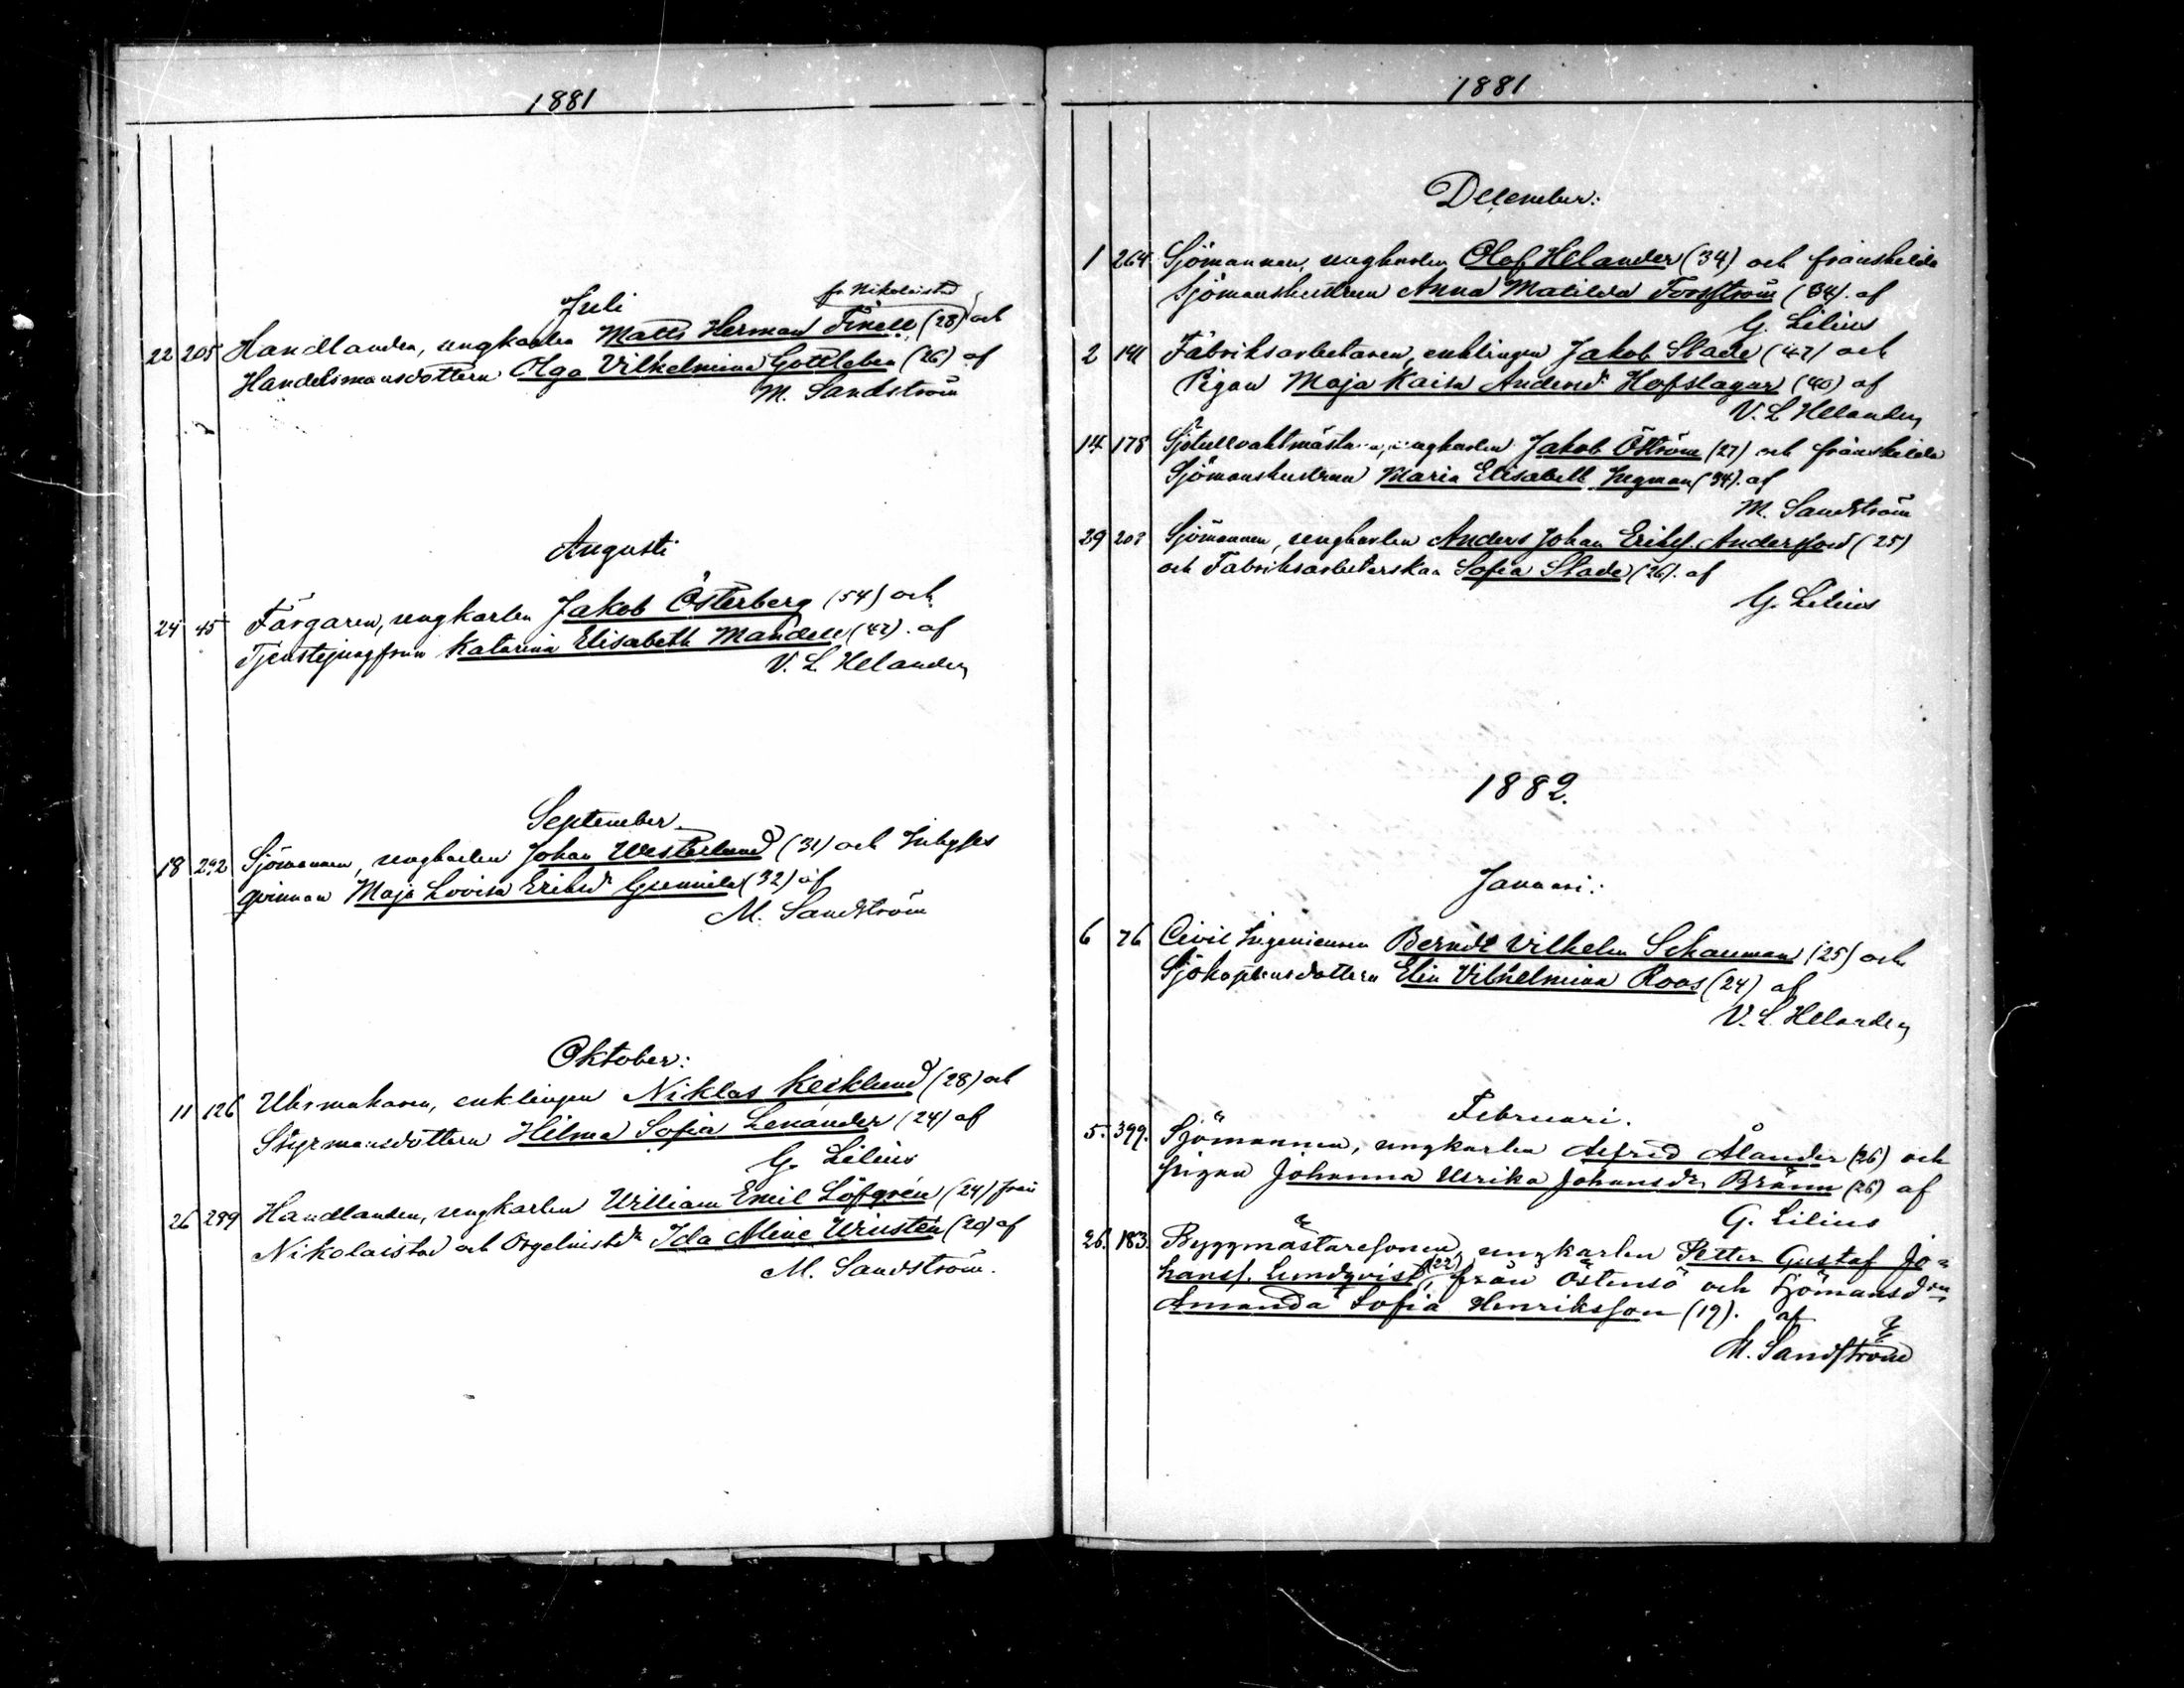 1881
Juli
fr Nikolaistad
22 205 Handlanden, ungkarlen Matts Herman Finell (28) och
Handelsmansdottern Olga Vilhelmina Gottleben (26) af
M. Sandström
Augusti
24 45 Färgaren, ungkarlen Jakob Österberg (54) och
Tjenstejungfrun Katarina Elisabeth Mandell (42). af
V. L. Helander
September
18 292 Sjömannen, ungkarlen Johan Westerlund (31) och Inhyses
qvinnan Maja Lovisa Eriksdr Gunnila (32) af
M. Sandström
Oktober:
11 126 Uhrmakaren, enklingen Niklas Keiklund (28) och
Styrmansdottern Hilma Sofia Lenander (24) af
G. Lilius
26 299 Handlanden, ungkarlen William Emil Löfgrén (24) från
Nikolaistad och Orgelnistdr Ida Aline Wristén (20) af
M. Sandström.
1881
December:
1 264 Sjömannen, ungkarlen Olof Helander (34) och frånskilda
Sjömanshustrun Anna Matilda Forsström (34). af
G. Lilius
2 141 Fabriksarbetaren, enklingen Jakob Slade (47) och
Pigan Maja Kaisa Andersdr Hofslagar (40) af
V. L. Helander
14 178 Sjötullvaktmästaren, ungkarlen Jakob Öström (27) och frånskilda
Sjömanshustrun Maria Elisabeth Ingman (34). af
M. Sandström
29 Sjömannen, ungkarlen Anders Johan Eriksf. Andersson (25)
och Fabriksarbeterskan Sofia Slade (26). af
G. Lilius
1882.
Januari:
6 76 Civil Ingenieuren Berndt Vilhelm Schauman (25) och
Sjökaptensdottern Elin Vilhelmina Roos (24) af
V. L. Helander
Februari.
5. 399. Sjömannen, ungkarlen Alfred Ålander (26) och
pigan Johanna Ulrika Johansdr Bränn (26) af
G. Lilius
26. 183. Byggmästaresonen, ungkarlen Petter Gustaf Jo=
hansf. Lundqvist (22), från Östensö och Sjömansdrn
Amanda Sofia Henriksson (19). af
M. Sandström